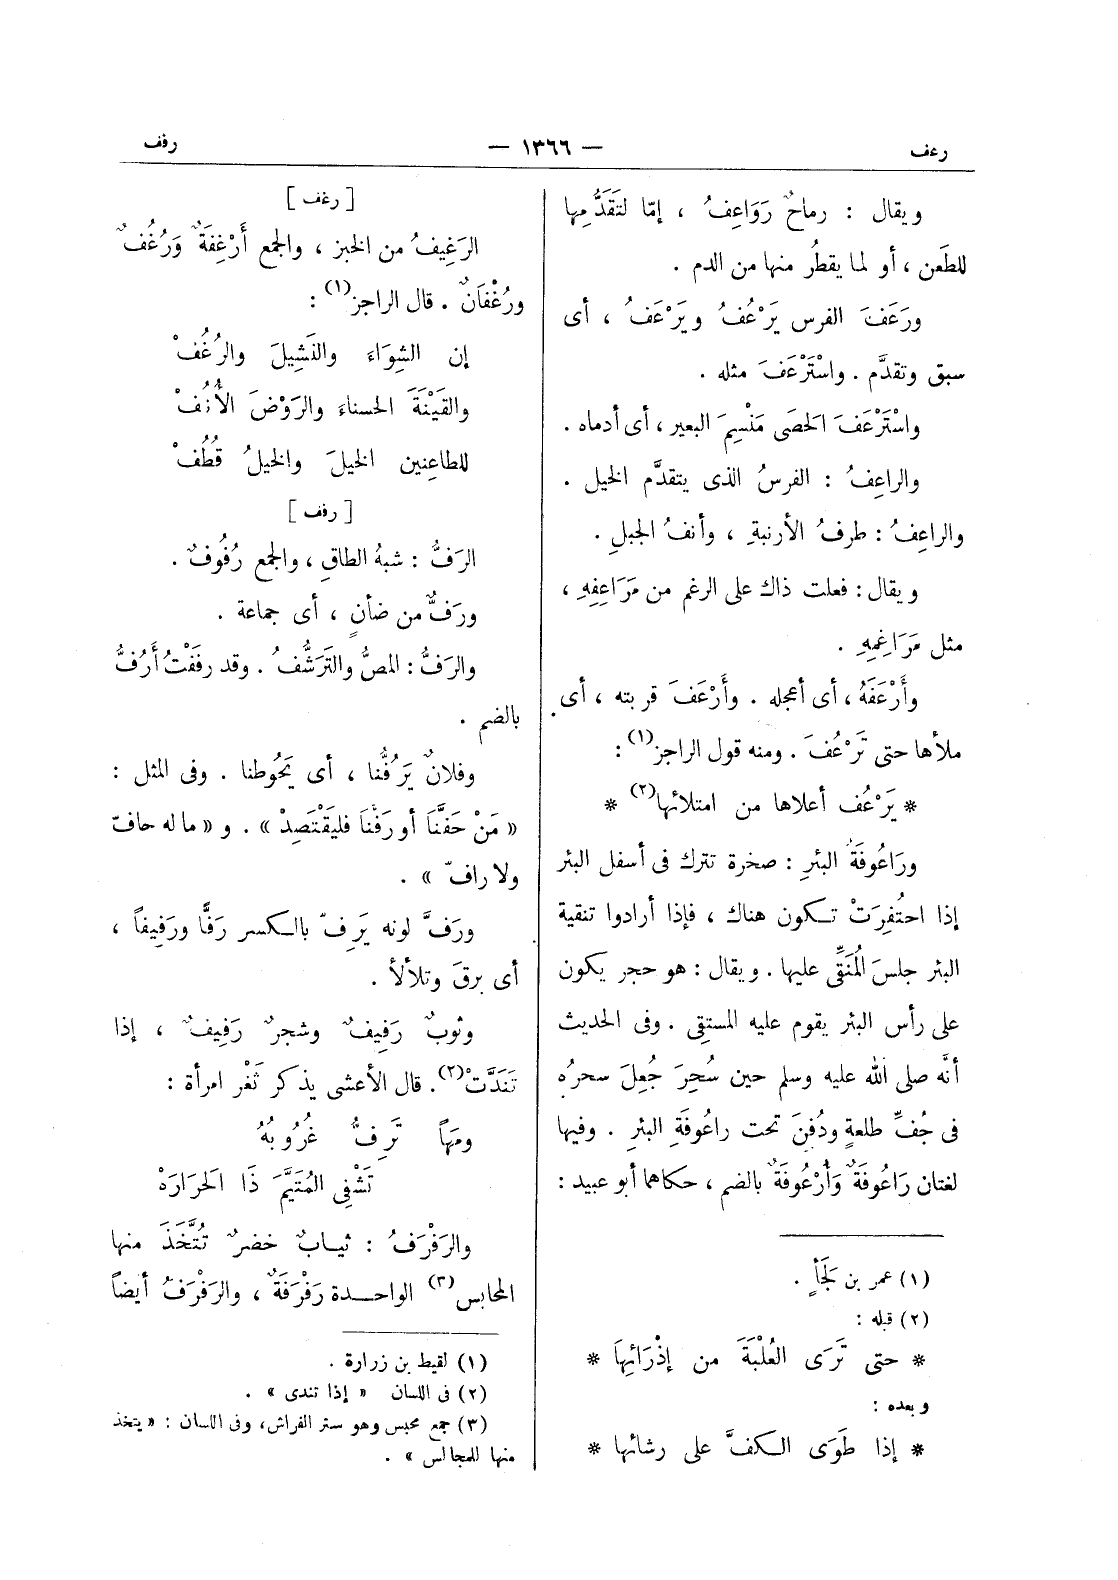 رعف
— ١٣٦٦ —
رفف
ويقال : رماحٌ رَوَاعِفُ ، إمّا لتَقَدُّمِها
للطَعن ، أو لما يقطُر منها من الدم .
ورَعَفَ الفرس يَرْعُفُ ويَرْعَفُ ، أى
سبق وتقدَّم . واسْتَرْعَفَ مثله .
واسْتَرْعَفَ الحَصَى مَنْسِمَ البعير ، أى أدماه .
والراعِفُ : الفرسُ الذى يتقدَّم الخيل .
والراعِفُ : طرفُ الأرنبةِ ، وأنفُ الجبلِ .
ويقال : فعلت ذاك على الرغم من مَرَاعِفِهِ ،
مثل مَرَاغِمِهِ .
وأَرْعَفَهُ ، أى أعجله . وأَرْعَفَ قربته ، أى
ملأها حتى تَرْعُفَ . ومنه قول الراجز(١) :
* يَرْعُف أعلاها من امتلائها(٢) *
ورَاعُوفَةُ البئرِ : صخرة تترك فى أسفل البئر
إذا احتُفِرَتْ تكون هناك ، فإذا أرادوا تنقية
البئر جلسَ المُنَقِّى عليها . ويقال : هو حجر يكون
على رأس البئر يقوم عليه المستقِى . وفى الحديث
أنَّه صلى الله عليه وسلم حين سُحِرَ جُعِلَ سحرُه
فى جُفِّ طلعةٍ ودُفِنَ تحت راعُوفَةِ البئرِ . وفيها
لغتان رَاعُوفَةٌ وَأُرْعُوفَةٌ بالضم ، حكاهما أبو عبيد :
(١) عمر بن لَجَأٍ .
(٢) قبله :
* حتى تَرَى العُلْبَةَ من إذْرَائِهَا *
وبعده :
* إذا طَوَى الكفَّ على رشائها *
[ رغف ]
الرَغِيفُ من الخبز ، والجمع أَرْغِفَةٌ وَرُغُفٌ
ورُغْفَانٌ . قال الراجز(١) :
إن الشِوَاءَ والنَشِيلَ والرُغُفْ
والقَيْنَةَ الحسناءَ والرَوْضَ الأُنُفْ
للطاعنين الخيلَ والخيلُ قُطُفْ
[ رفف ]
الرَفُّ : شبهُ الطاقِ ، والجمع رُفُوفٌ .
ورَفٌّ من ضأنٍ ، أى جماعة .
والرَفُّ : المصُّ والتَرَشُّفُ . وقد رفَفْتُ أَرُفُّ
بالضم .
وفلانٌ يَرُفُّنا ، أى يَحُوطنا . وفى المثل :
« مَنْ حَفَّنَا أو رَفَّنَا فليَقْتَصِدْ » . و « ما له حافّ
ولا رافّ » .
ورَفَّ لونه يَرِفّ بالكسر رَفًّا ورَفِيفاً ،
أى برقَ وتلألأ .
وثوبٌ رَفِيفٌ وشجرٌ رَفِيفٌ ، إذا
تَنَدَّتْ(٢). قال الأعشى يذكر ثَغْر امرأة :
ومَهاً تَرِفُّ غُرُوبُهُ
تَشْفِى المُتَيَّمَ ذَا الحَرَارَهْ
والرَفْرَفُ : ثيابٌ خضرٌ تُتَّخَذَ منها
المحابس(٣) الواحدة رَفْرَفَةٌ ، والرَفْرَفُ أيضاً
(١) لقيط بن زرارة .
(٢) فى اللسان « إذا تندى » .
(٣) جمع محبس وهو ستر الفراش، وفى اللسان : « يتخذ
منها للمجالس » .